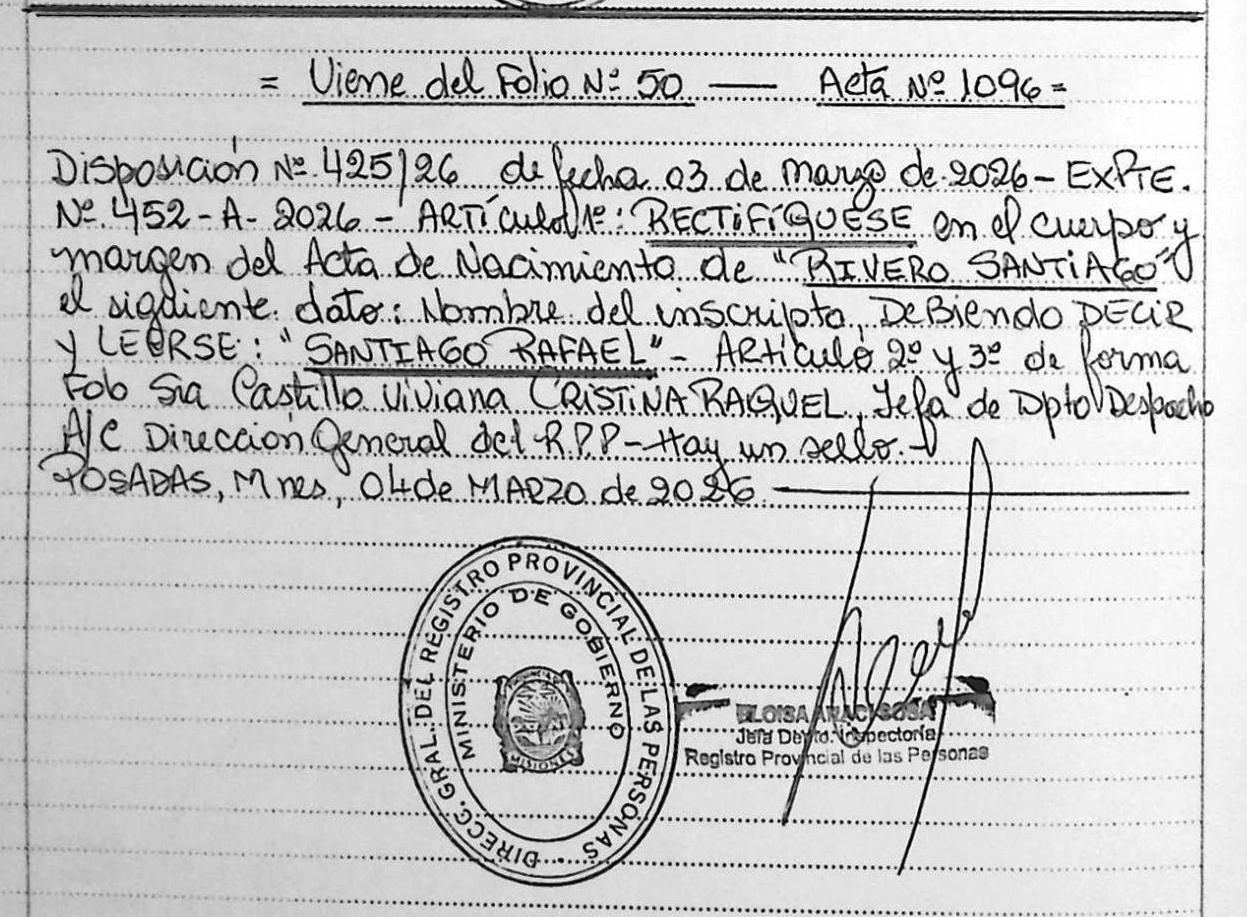 = Viene del Folio Nº 50 — Acta Nº 1096 =
Disposición Nº 425/26 de fecha 03 de marzo de 2026 - EXPTE.
Nº 452 - A - 2026 - ARTÍculo 1º: RECTIFÍQUESE en el cuerpo y
margen del Acta de Nacimiento de "RIVERO SANTIAGO"
el siguiente dato: Nombre del inscripto, DEBIENDO DECIR
Y LEERSE: "SANTIAGO RAFAEL" - ARtículo 2º y 3º de forma
Fdo Sra Castillo Viviana CRISTINA RAQUEL, Jefa de Dpto Despacho
A/C Dirección General del R.P.P - Hay un sello. -
POSADAS, Mnes, 04 de MARZO de 2026
DIRECC. GRAL. DEL REGISTRO PROVINCIAL DE LAS PERSONAS
MINISTERIO DE GOBIERNO
MISIONES
ELOISA ARACI SOSA
Jefa Depto. Inspectoría
Registro Provincial de las Personas